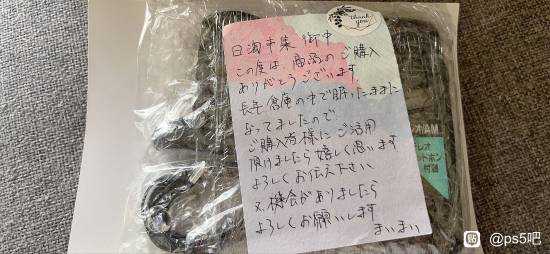 thank you
日淘市集 御中
この度は、商品のご購入
ありがとうございます
長年倉庫の中で眠ったままに
なってましたので
ご購入者様にご活用
頂けましたら嬉しく思います
よろしくお伝え下さい
又、機会がありましたら
よろしくお願いします
まいまい
オ/AM
レオ
ットホン
付遺
貼 @ps5吧